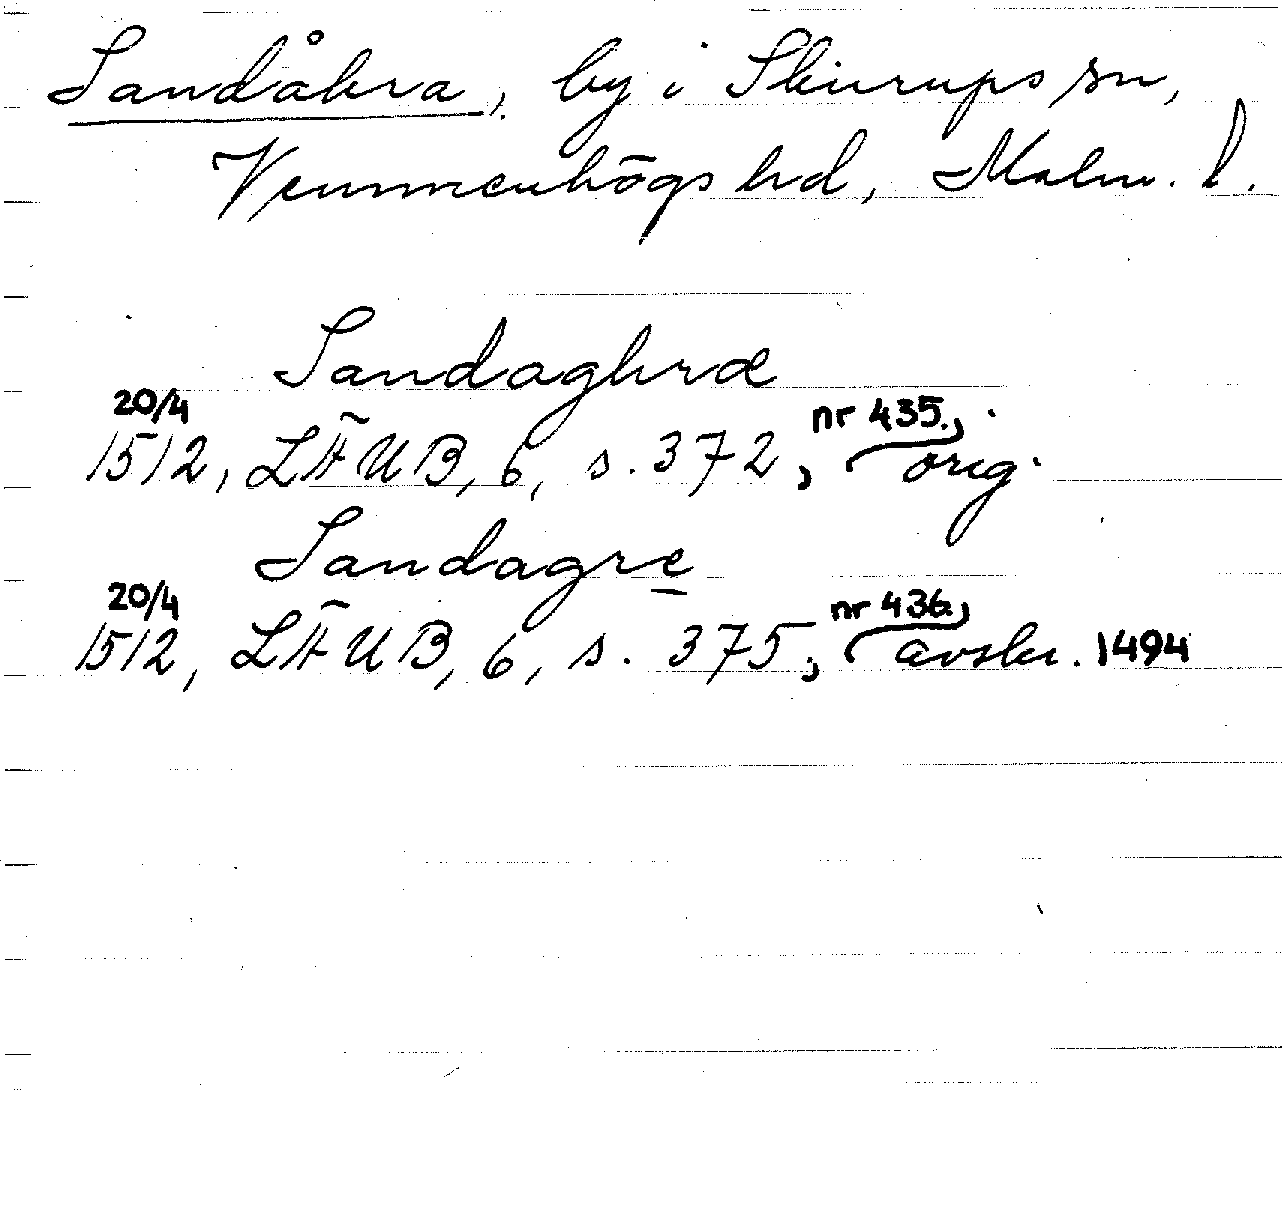 Sandåkra, by i Skurups sn,
Vemmenhögs hd, Malm. l.
Sandaghræ
20/4 nr 435.,
1512, LÄUB, 6, s. 372, orig.
Sandagre
20/4 nr 436.,
1512, LÄUB, 6, s. 375, avskr. 1494